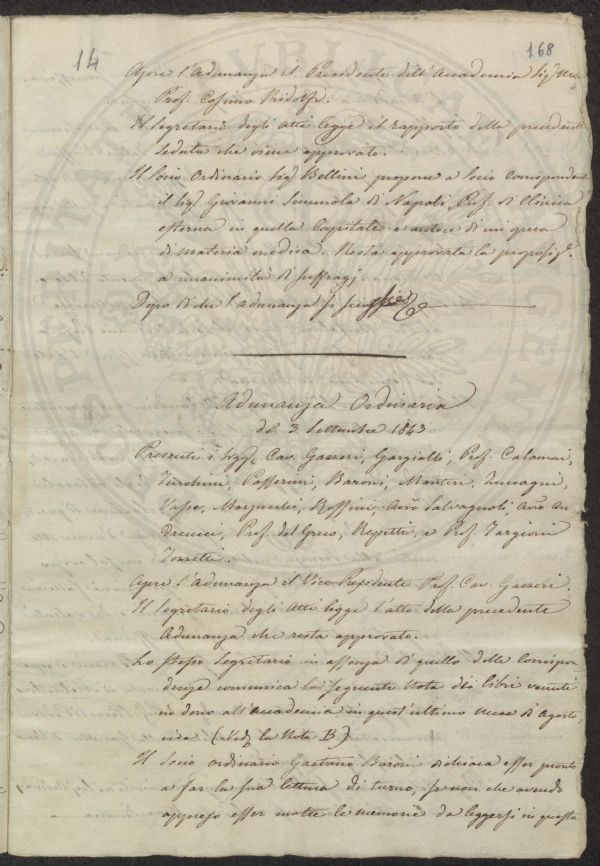 14
168
Apre l'Adunanza il Presidente dell'Accademia Sigr
Prof. Cosimo Ridolfi.
Il Segretario degli atti legge il rapporto della precedente
seduta che viene approvato.
Il Socio Ordinario Sigr Bellini propone a Socio Corrispondente
il Sigr Giovanni Semmola di Napoli, Prof. di Clinica
esterna in quella Capitale e autore di un'opera
di materia medica. Resta approvata la proposiz.e
a unanimità di suffragj.
Dopo di che l'adunanza si
Adunanza Ordinaria
de' 3 Settembre 1843
Presenti i Sigg. Cav. Gazzeri, Gargiolli, Prof. Calamai,
Turchini, Passerini, Baroni, Martini, Zuccagni,
Vasse, Marzucchi, Boffini, Avv.o Salvagnoli, Avv.o An
dreucci, Prof. del Greco, Repetti, e Prof. Targioni
Tozzetti.
Apre l'Adunanza il Vice Presidente Prof. Cav. Gazzeri.
Il Segretario degli Atti legge l'atto della precedente
Adunanza che resta approvato.
Lo stesso Segretario in assenza di quello delle corrispon
denze comunica la seguente Nota dei libri venuti
in dono all'Accademia in quest'ultimo mese d'Agosto
(Ved. la Nota B)
Il Socio ordinario Gaetano Baroni dichiara esser pronto
a far la sua lettura di turno, se non che avendo
appreso esser molte le memorie da leggersi in questa